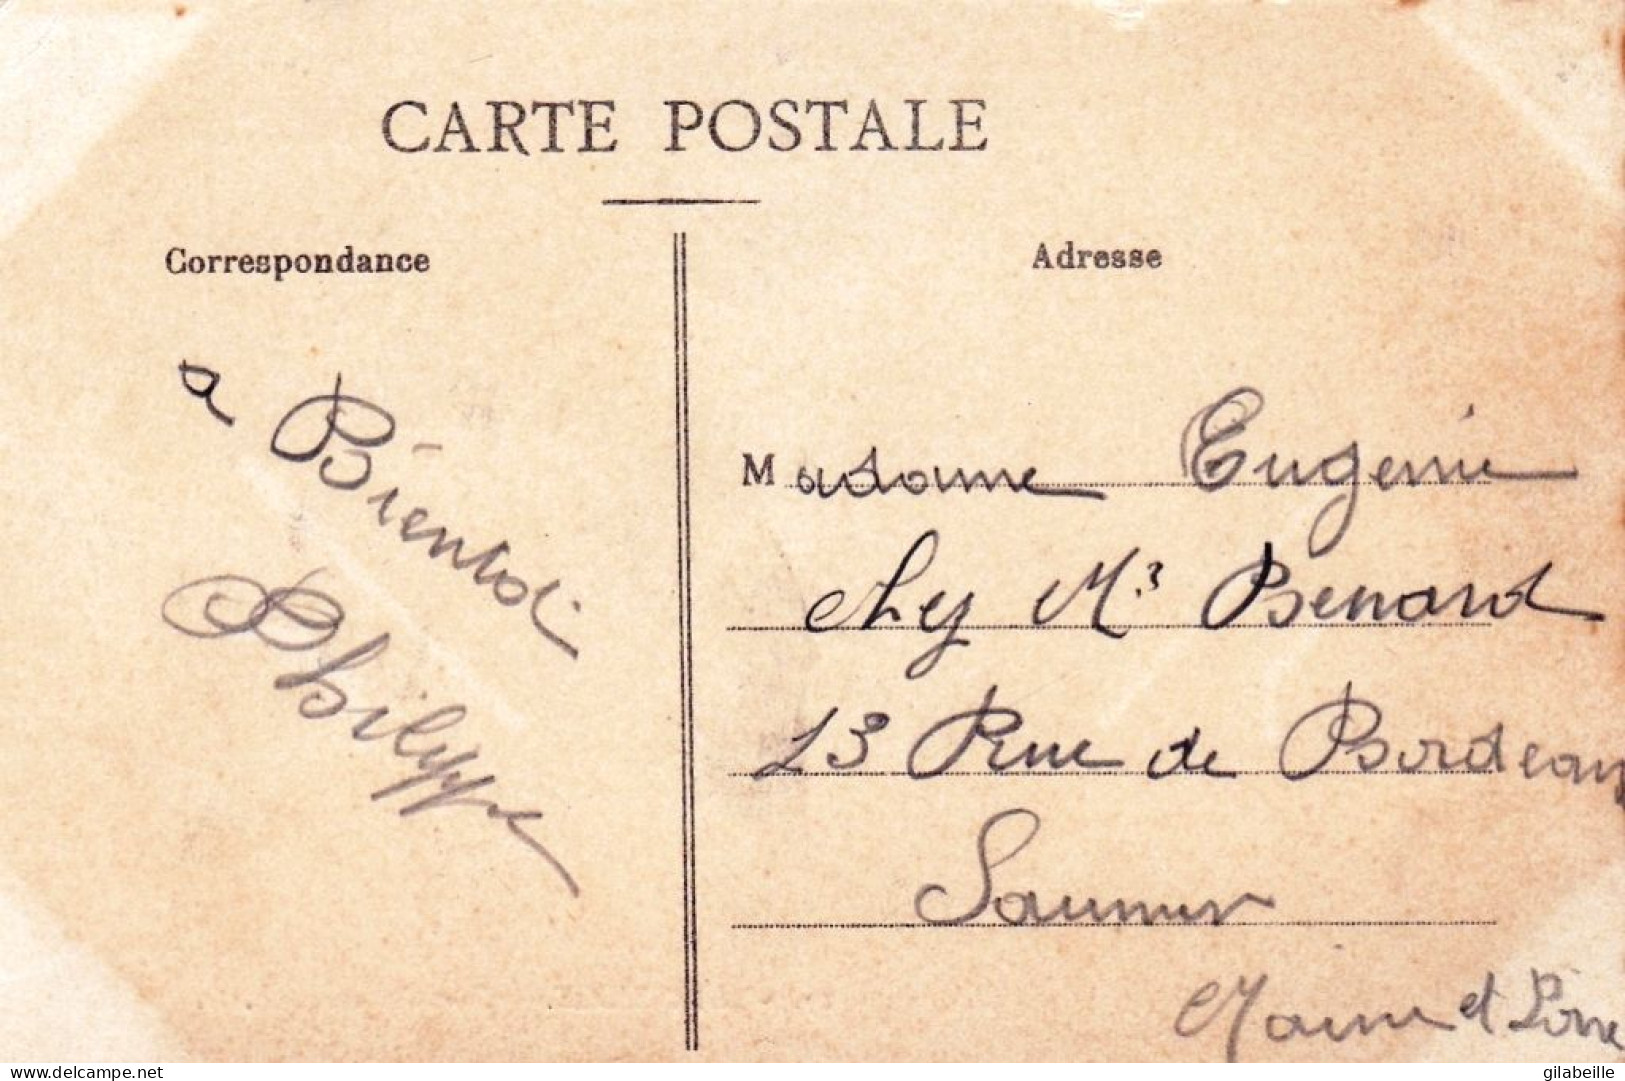 CARTE POSTALE
Correspondance
Adresse
a Bientot
Philippe
Madame Eugenie
chez Mr Benard
13 Rue de Bordeaux
Saumur
Maine et Loire
delcampe.net
gilabeille